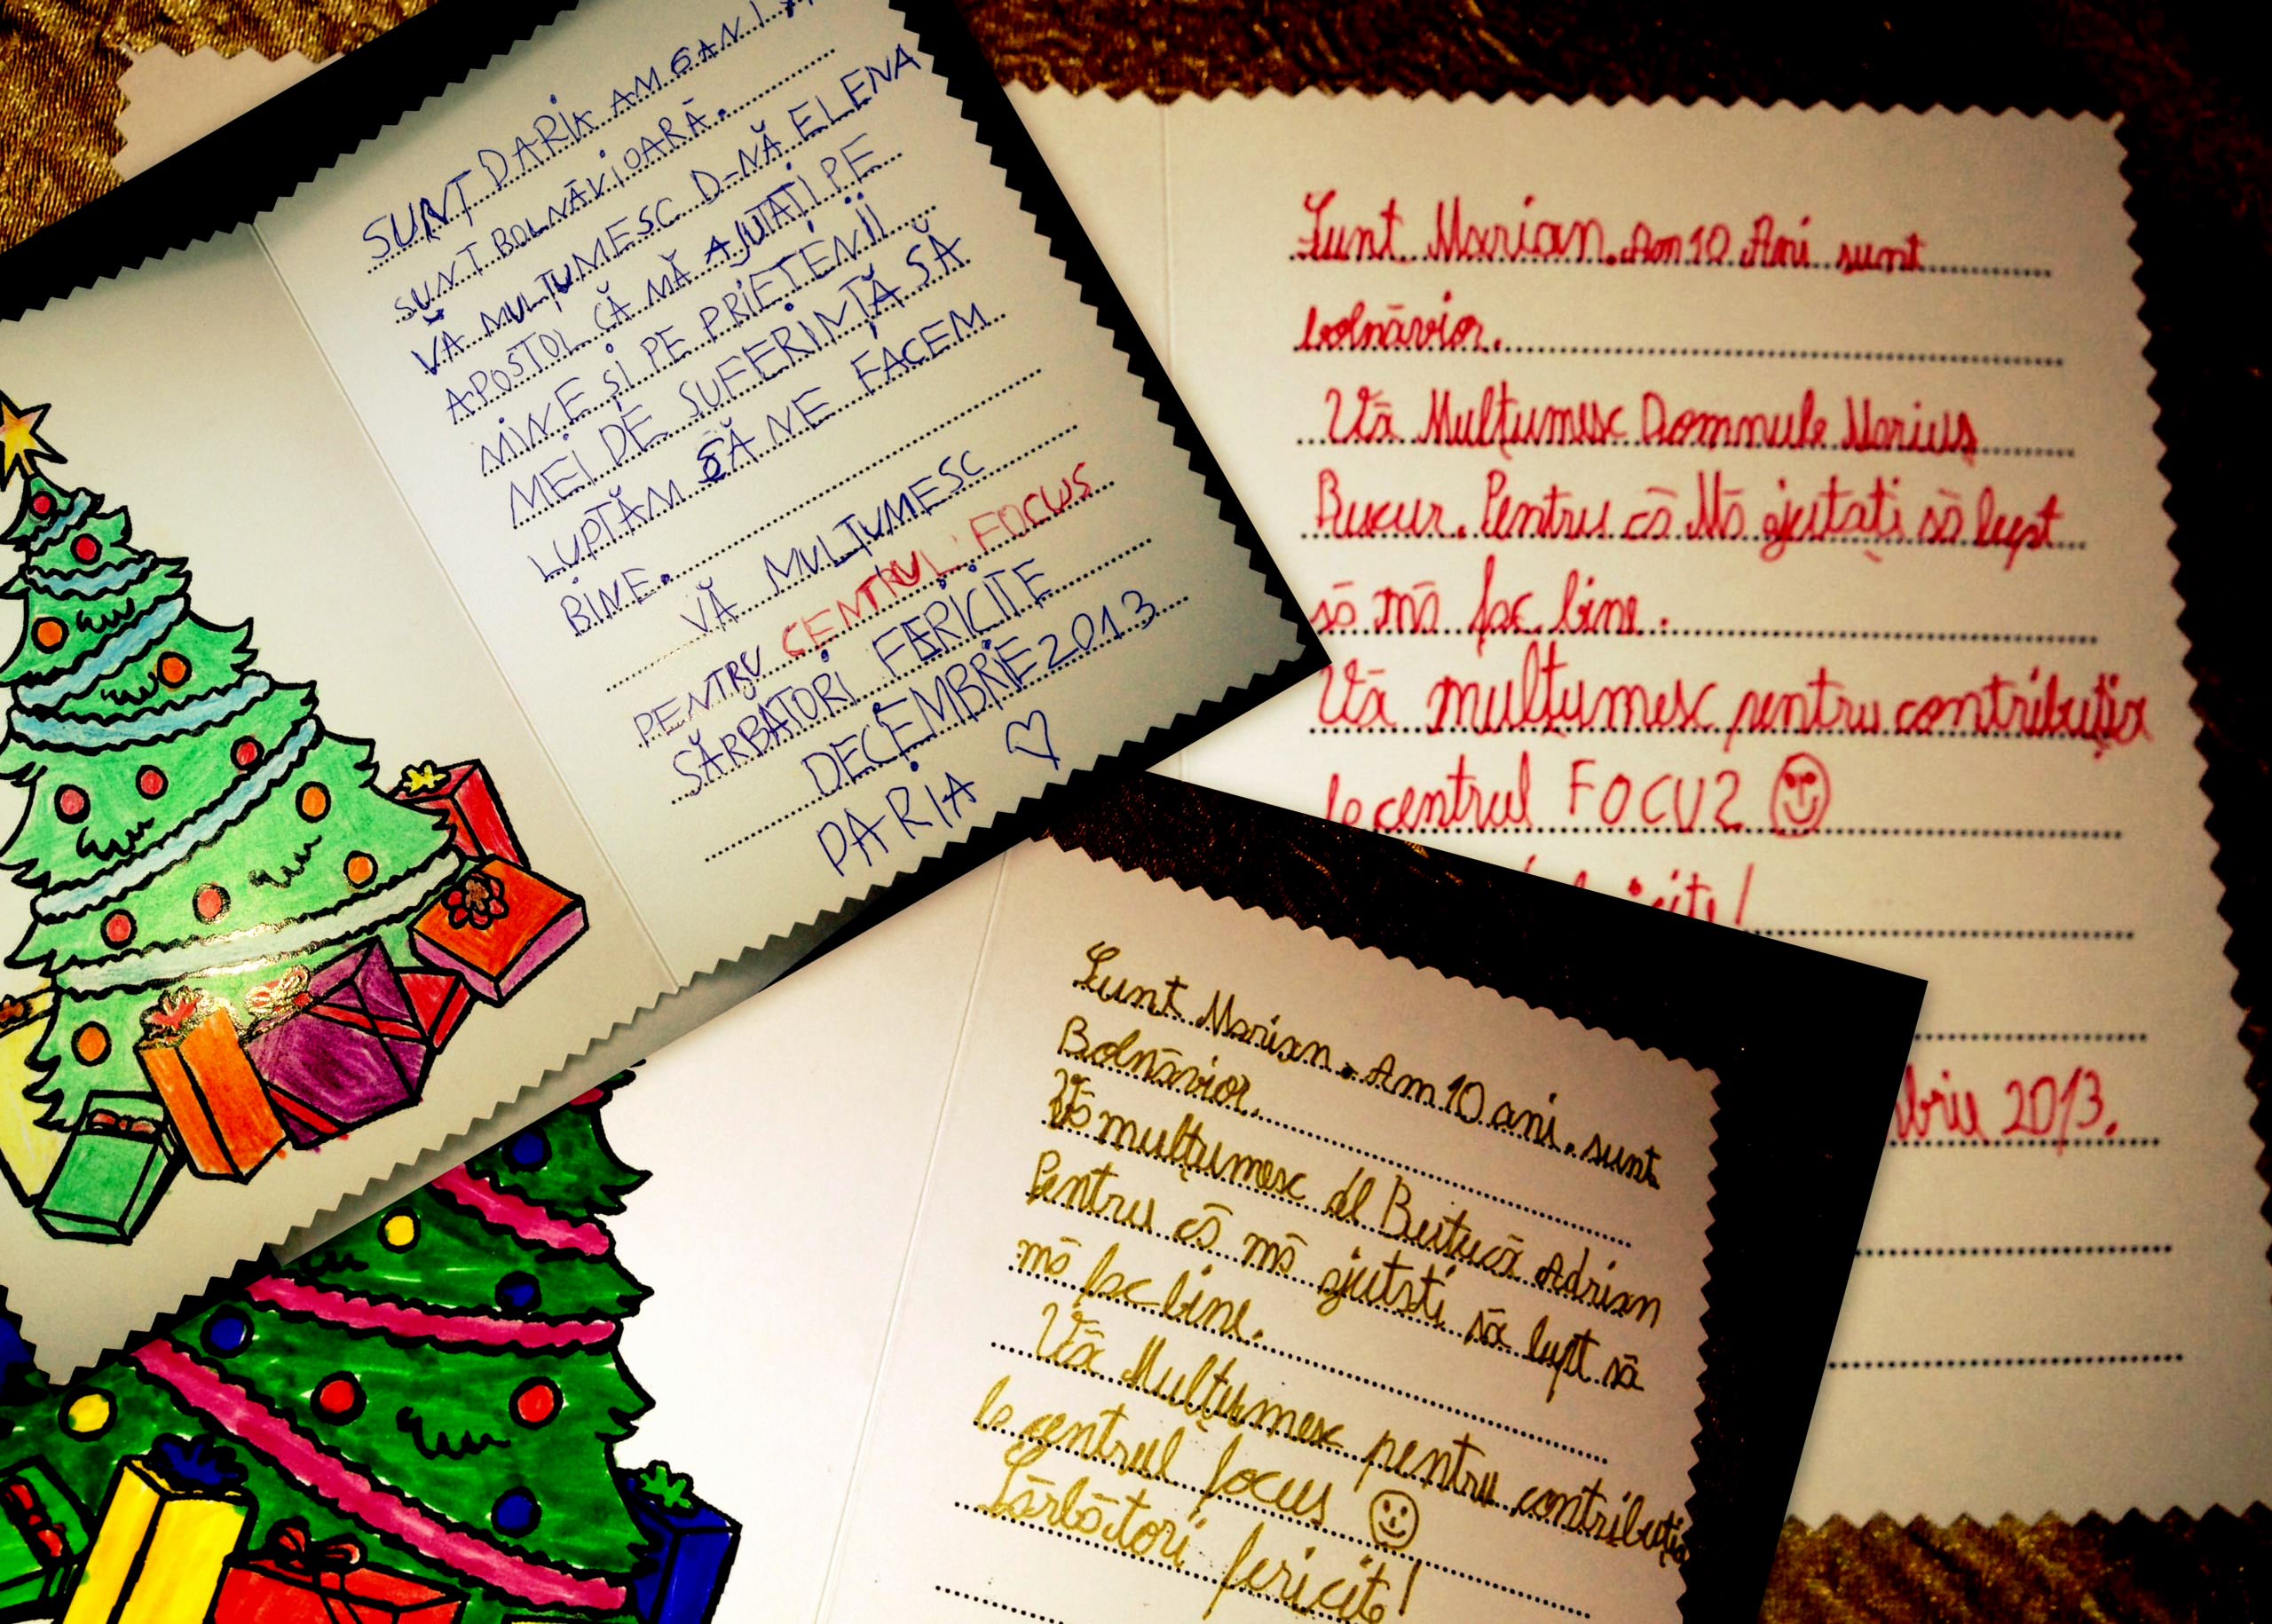 SUNT DARIA AM 6 ANI
SUNT BOLNĂVIOARĂ.
VĂ MULȚUMESC D-NĂ ELENA
APOSTOL CĂ MĂ AJUTAȚI PE
MINE ȘI PE PRIETENII
MEI DE SUFERINȚĂ SĂ
LUPTĂM SĂ NE FACEM
BINE.
VĂ MULȚUMESC
PENTRU CENTRUL FOCUS
SĂRBĂTORI FERICITE
DECEMBRIE 2013
DARIA
Sunt Marian. Am 10 Ani sunt
bolnăvior.
Vă Mulțumesc Domnule Marius
Bucur. Pentru că Mă ajutați să lupt
să mă fac bine.
Vă mulțumesc pentru contribuția
la centrul FOCUS
icite!
brie 2013.
Sunt Marian. Am 10 ani. sunt
Bolnăvior.
Vă mulțumesc dl Buitucă Adrian
Pentru că mă ajutati să lupt să
mă fac bine.
Vă Mulțumesc pentru contribuția
la centrul focus
Sărbători fericite!